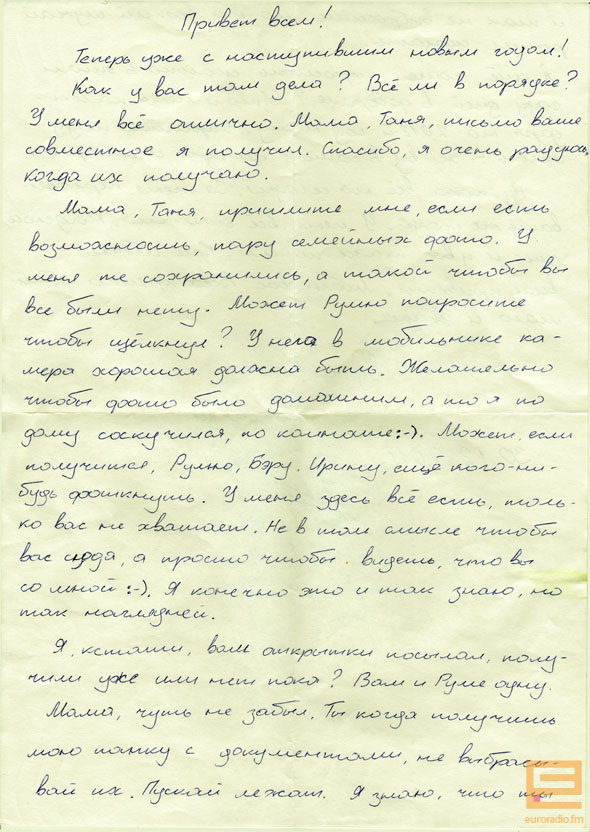 Привет всем!
Теперь уже с наступившим новым годом!
Как у вас там дела? Всё ли в порядке?
У меня всё отлично. Мама, Таня, письмо ваше
совместное я получил. Спасибо, я очень радуюсь,
когда их получаю.
Мама, Таня, пришлите мне, если есть
возможность, пару семейных фото. У
меня те сохранились, а такой чтобы вы
все были нету. Может Румю попросите
чтобы щёлкнул? У него в мобильнике ка-
мера хорошая должна быть. Желательно
чтобы фото было домашним, а то я по
дому соскучился, по комнате:-). Может, если
получится, Румю, Бэру, Ирину, ещё кого-ни-
будь фоткнуть. У меня здесь всё есть, толь-
ко вас не хватает. Не в том смысле чтобы
вас сюда, а просто чтобы видеть, что вы
со мной:-). Я конечно это и так знаю, но
так наглядней.
Я, кстати, вам открытки посылал, полу-
чили уже или нет пока? Вам и Руме одну.
Мама, чуть не забыл. Ты когда получишь
мою папку с документами, не выбрасы-
вай их. Пускай лежат. Я знаю, что ты
euroradio.fm